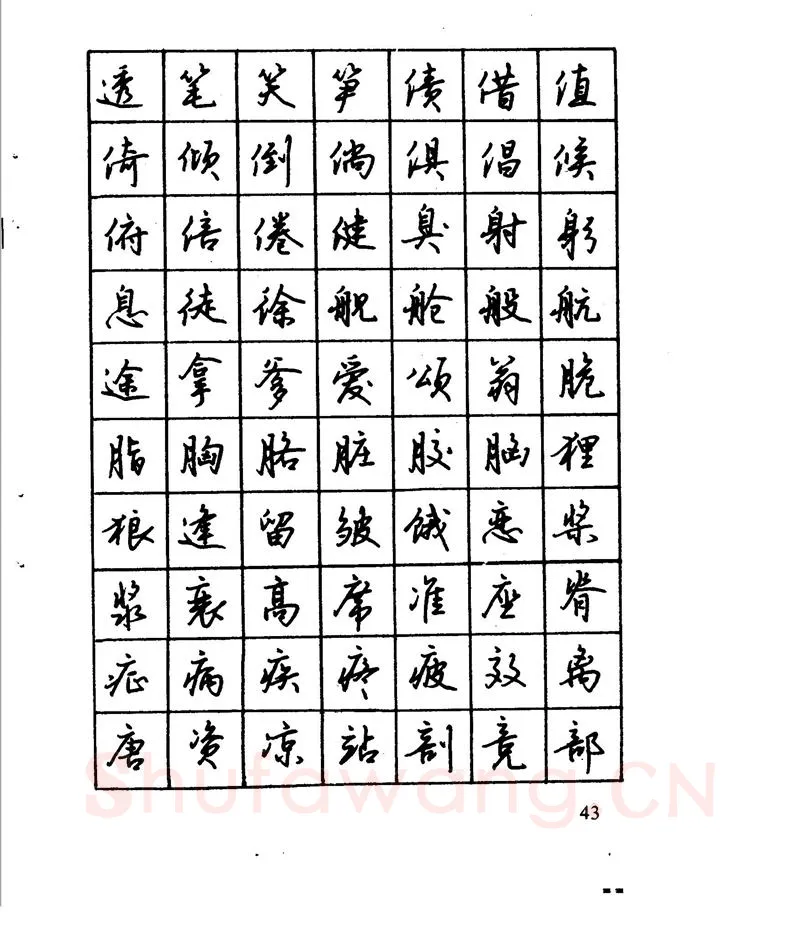 透 笔 笑 笋 债 借 值
倚 倾 倒 倘 俱 倡 候
俯 倍 倦 健 臭 射 躬
息 徒 徐 舰 舱 般 航
途 拿 爹 爱 颂 翁 脆
脂 胸 胳 脏 胶 脑 狸
狼 逢 留 皱 饿 恋 桨
浆 衰 高 席 准 座 脊
症 病 疾 疼 疲 效 离
唐 资 凉 站 剖 竞 部
Shufawang.CN
43